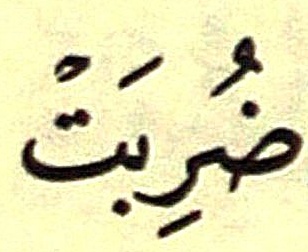 ضُرِبَتْ